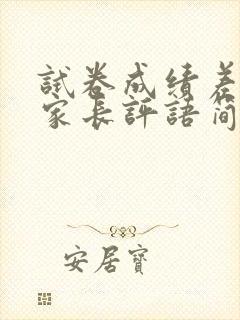 試卷成績差
家長評語簡
安居寶